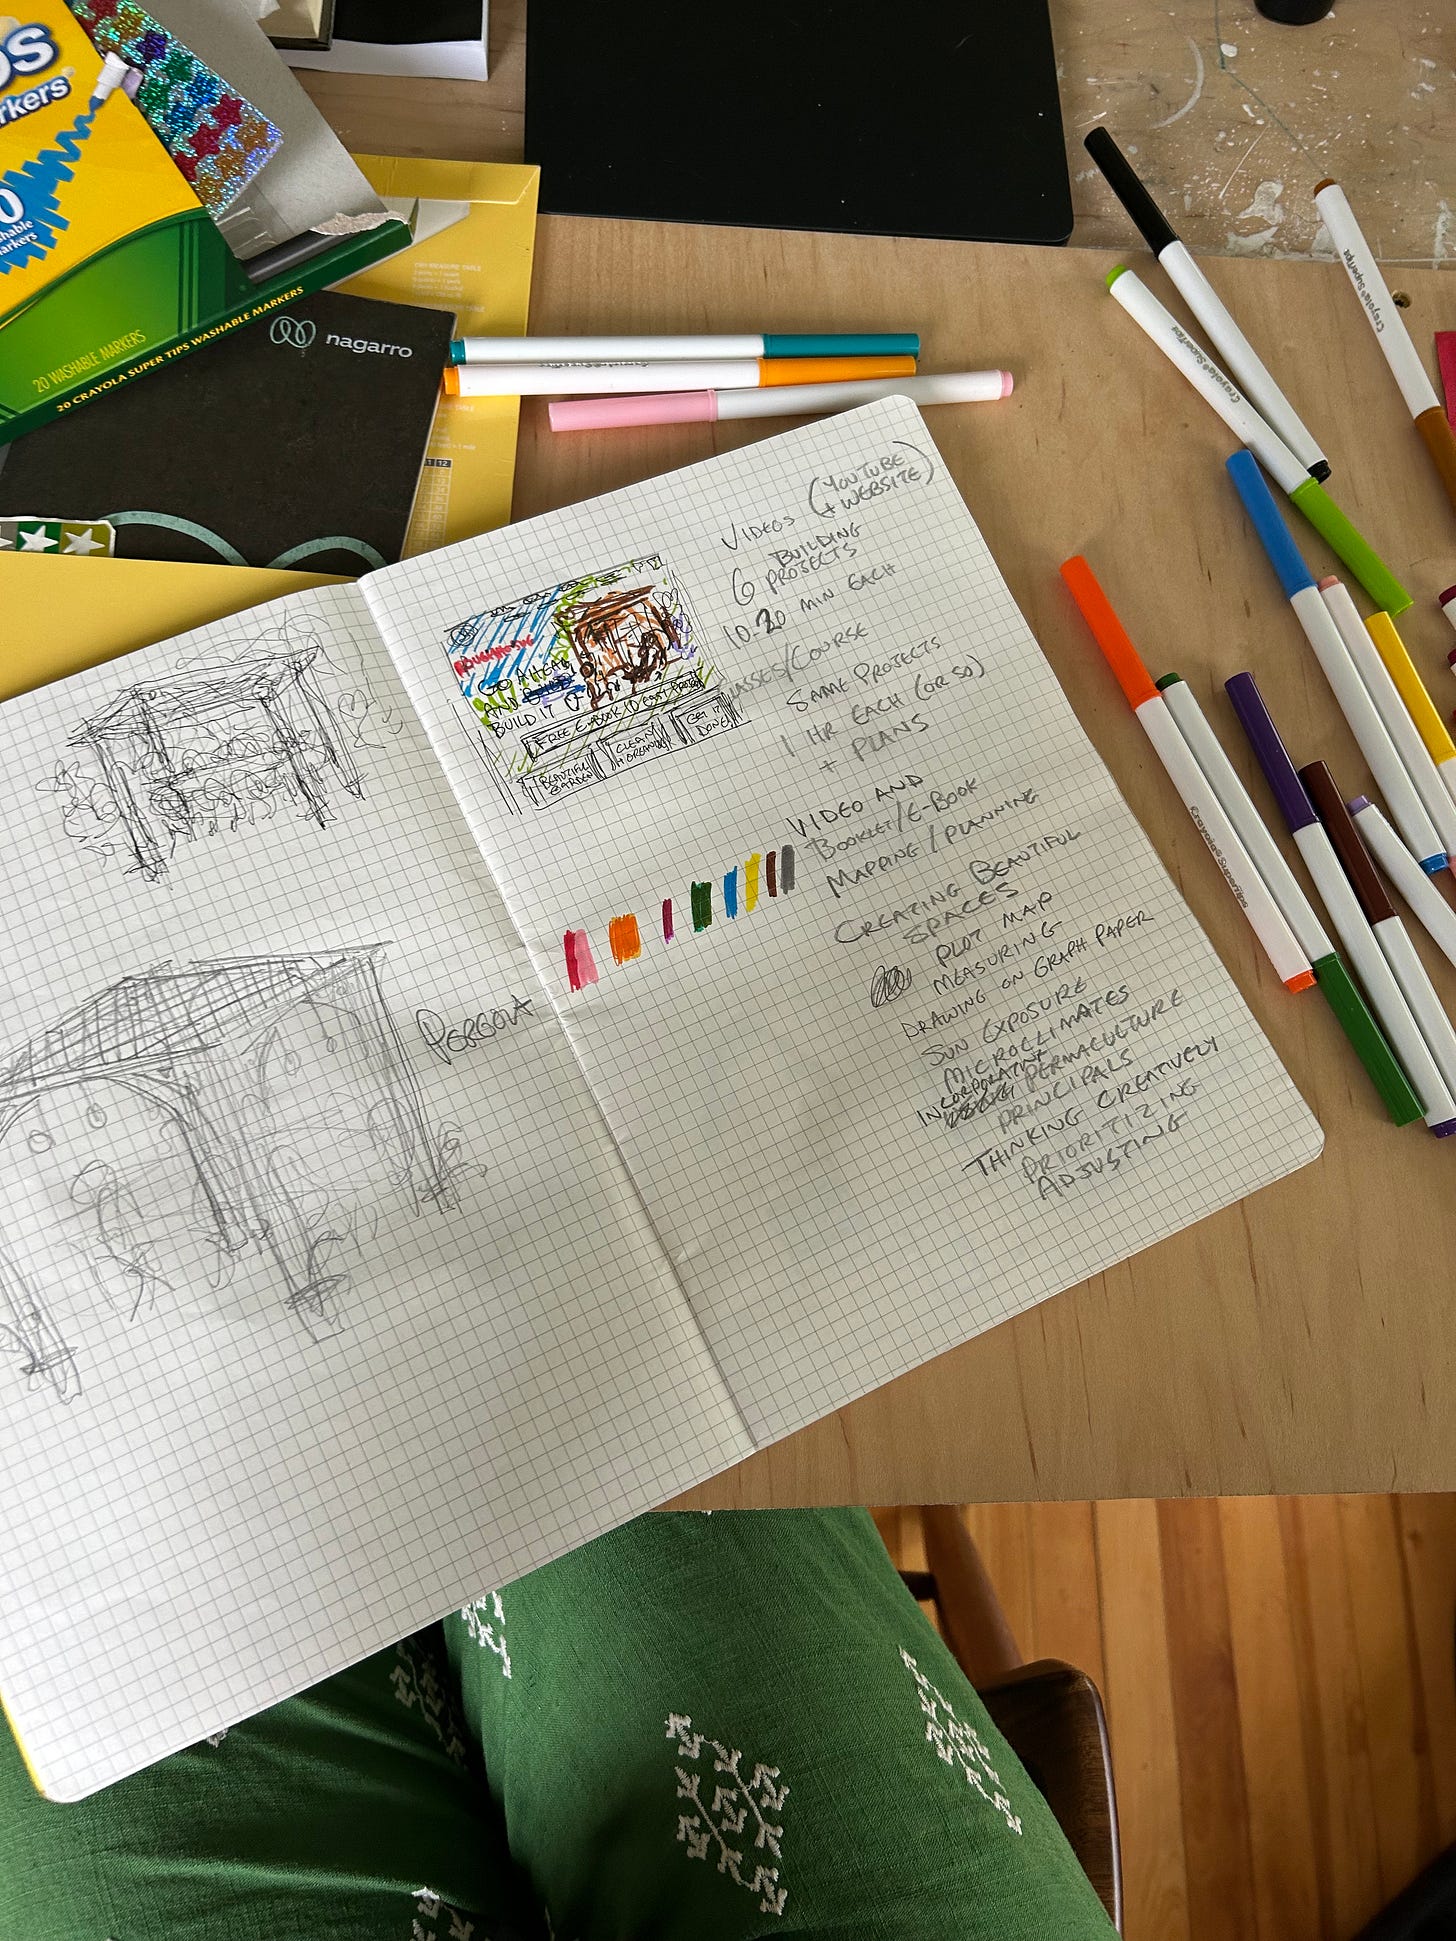 os
rkers
0
hable
arkers
20 WASHABLE MARKERS
20 CRAYOLA SUPER TIPS WASHABLE MARKERS
nagarro
11 12
Crayola SuperTips
Crayola SuperTips
Crayola SuperTips
PERGOLA
GO AHEAD
AND
BUILD IT
FREE E-BOOK 10 EASY PROJECTS
BEAUTIFUL
GARDEN
CLEAN
+ ORGANIZE
GET IT
DONE
VIDEOS (YOUTUBE
+ WEBSITE)
6 BUILDING
PROJECTS
10-20 MIN EACH
ASSES/COURSE
SAME PROJECTS
1 HR EACH (OR SO)
+ PLANS
VIDEO AND
BOOKLET/E-BOOK
MAPPING/PLANNING
CREATING BEAUTIFUL
SPACES
PLOT MAP
MEASURING
DRAWING ON GRAPH PAPER
SUN EXPOSURE
MICROCLIMATES
INCORPORATING PERMACULTURE
PRINCIPALS
THINKING CREATIVELY
PRIORITIZING
ADJUSTING